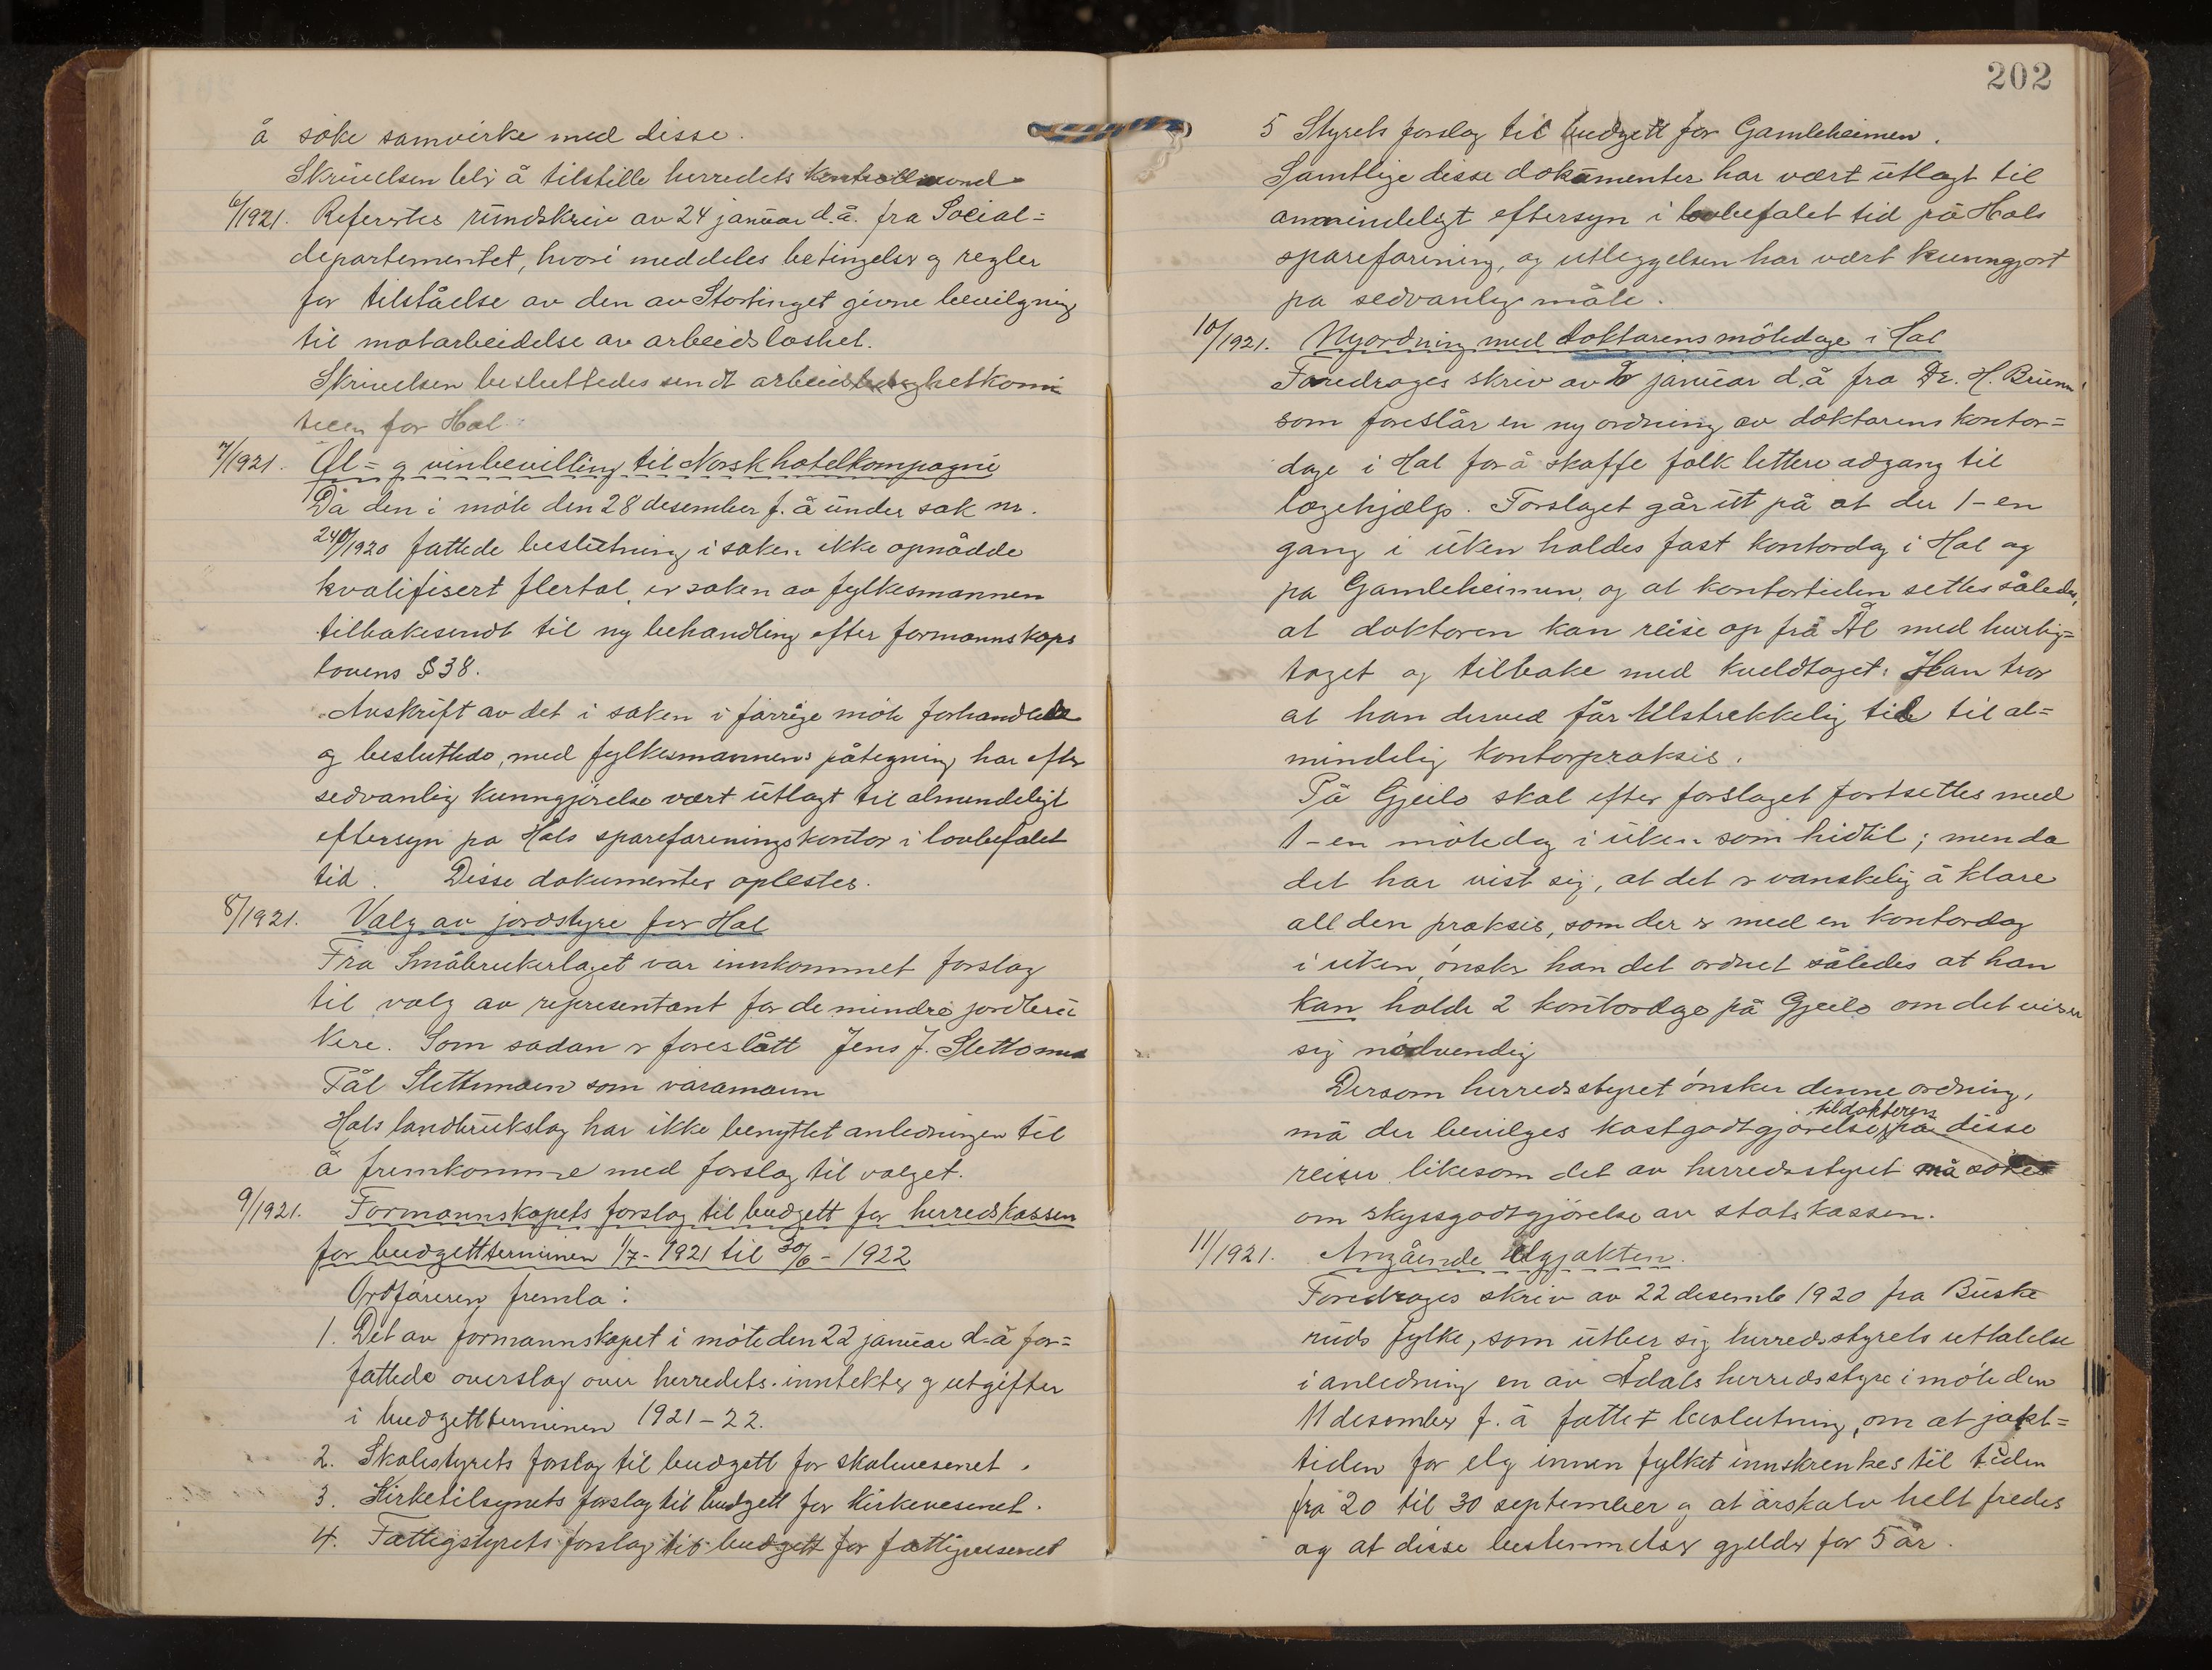 å søke samvirke med disse.
Skrivelsen blir å tilstille herredets
6/1921. Refertes rundskriv av 24 januar d.å. fra Social=
departementet, hvori meddeles betingelser og regler
for tilståelse av den av Stortinget givne bevilgning
til motarbeidelse av arbeidsløshet.
Skrivelsen besluttedes sendt
teen for Hol
7/1921. Øl= og vinbevilling til Norsk hotelkompagni
Da den i møte den 28 desember f. å under sak nr.
240/1920 fattede beslutning i saken ikke opnådde
kvalifisert flertal, er saken av fylkesmannen
tilbakesendt til ny behandling efter formannskaps
lovens § 38.
Avskrift av det i saken i forrige møte forhandlede
og besluttede, med fylkesmannens påtegning har efter
sedvanlig kunngjørelse vært utlagt til almindeligt
eftersyn på Hols spareforeningskontor i lovbefalet
tid. Disse dokumenter oplestes.
8/1921. Valg av jordstyre for Hol
Fra Småbrukerlaget var innkommet forslag
til valg av representant for de mindre jordbru
kere. Som sådan er foreslått Jens J. Sletto med
Pål Slettemoen som varamann
Hols landbrukslag har ikke benyttet anledningen til
å fremkomme med forslag til valget.
9/1921. Formannskapets forslag til budgett for herredskassen
for budgettterminen 1/7 - 1921 til 30/6 - 1922
Ordføreren fremla:
1. Det av formannskapet i møte den 22 januar d.å for=
fattede overslag over herredets inntekter og utgifter
i budgettterminen 1921-22.
2. Skolestyrets forslag til budgett for skolevesenet.
3. Kirketilsynets forslag til budgett for kirkevesenet.
4. Fattigstyrets forslag til budgett for fattigvesenet
202
5 Styrets forslag til budgett for Gamleheimen.
Samtlige disse dokumenter har vært utlagt til
almindeligt eftersyn i lovbefalet tid på Hols
spareforening, og utleggelsen har vært kunngjort
på sedvanlig måte.
10/1921. Nyordning med doktorens møtedage i Hol
Foredrages skriv av januar d.å fra Dr. H. Bruun
som foreslår en ny ordning av doktorens kontor=
dage i Hol for å skaffe folk lettere adgang til
lægehjælp. Forslaget går ut på at der 1-en
gang i uken holdes fast kontordag i Hol og
på Gamleheimen, og at kontortiden settes således,
at doktoren kan reise op frå Ål med hurtig=
toget og tilbake med kveldtoget. Han tror
at han derved får tilstrekkelig tid til al=
mindelig kontorpraksis.
På Gjeilo skal efter forslaget fortsettes med
1-en møtedag i uken som hidtil; men da
det har vist sig, at det er vanskelig å klare
all den praksis, som der er med en kontordag
i uken, ønsker han det ordnet således at han
kan holde 2 kontordage på Gjeilo om det viser
sig nødvendig
Dersom herredsstyret ønsker denne ordning,
til doktoren
må der bevilges kostgodtgjørelse på disse
reiser likesom det av herredsstyret må søkes
om skyssgodtgjørelse av statskassen.
11/1921. Angående elgjakten.
Foredrages skriv av 22 desemb 1920 fra Buske
ruds fylke, som utber sig herredsstyrets uttalelse
i anledning en av Ådals herredsstyre i møte den
11 desember f. å fattet beslutning, om at jakt=
tiden for elg innen fylket innskrenkes til tiden
fra 20 til 30 september og at årskalv helt fredes
og at disse bestemmelser gjelder for 5 år.